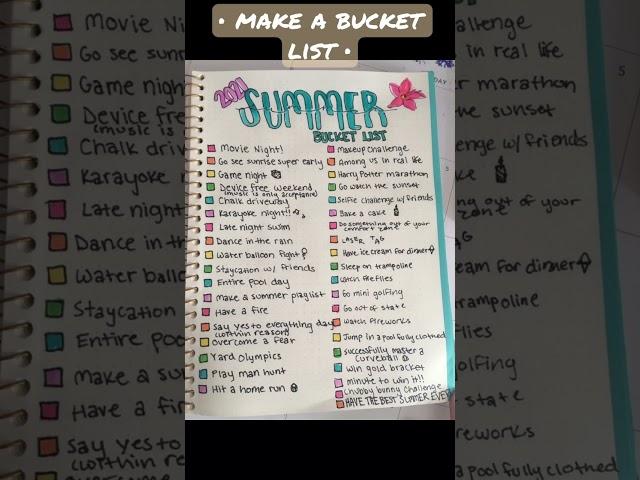 • MAKE A BUCKET
LIST •
2021
SUMMER
BUCKET LIST
Movie Night!
Go see sunrise super early
Game night
Device free weekend
(music is only acceptable)
Chalk driveway
Karayoke night!!
Late night swim
Dance in the rain
Water balloon fight
Staycation w/ friends
Entire pool day
Make a summer playlist
Have a fire
Say yes to everything day
(within reason)
Overcome a fear
Yard Olympics
Play man hunt
Hit a home run
Makeup challenge
Among us in real life
Harry Potter marathon
Go watch the sunset
Selfie challenge w/ friends
Bake a cake
Do something out of your
comfort zone
LASER TAG
Have ice cream for dinner
Sleep on trampoline
Catch fireflies
Go mini golfing
Go out of state
Watch fireworks
Jump in a pool fully clothed
Successfully master a
curveball
Win gold bracket
Minute to win it!!
Chubby bunny challenge
HAVE THE BEST SUMMER EVER